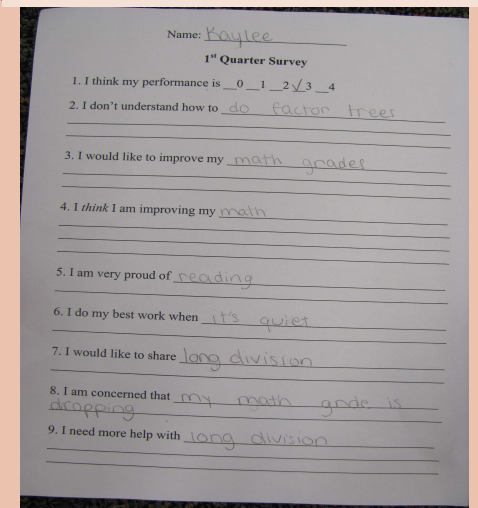 Name: Kaylee
1st Quarter Survey
1. I think my performance is __0 __1 __2 ✓3 __4
2. I don't understand how to do factor trees
3. I would like to improve my math grades
4. I think I am improving my math
5. I am very proud of reading
6. I do my best work when it's quiet
7. I would like to share long division
8. I am concerned that my math grade is
dropping
9. I need more help with long division